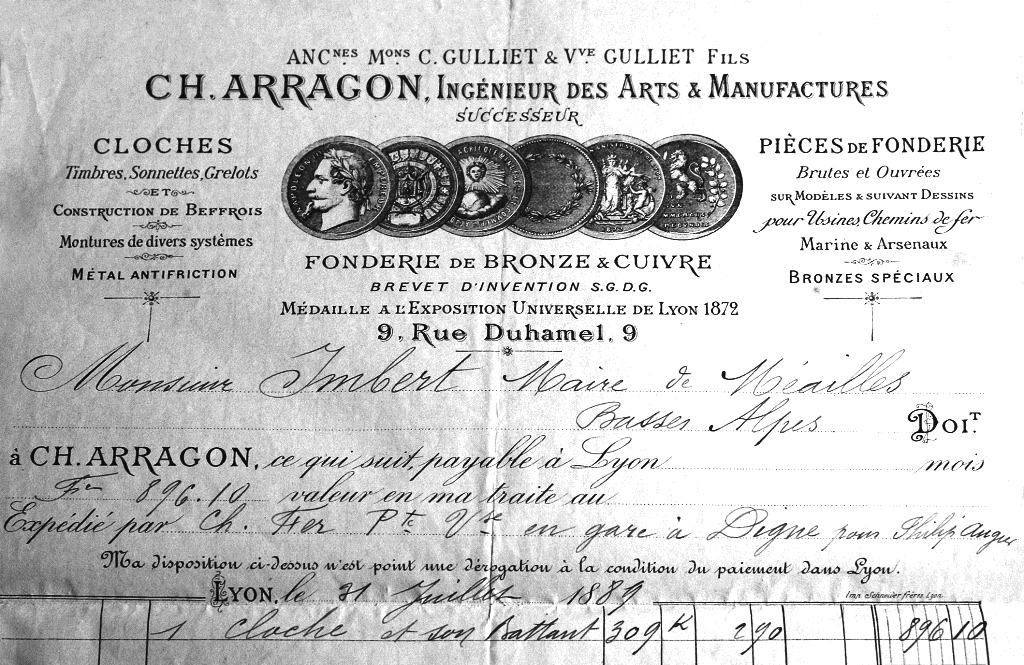 ANCNES MONS C. GULLIET & VVE GULLIET FILS
CH. ARRAGON, INGÉNIEUR DES ARTS & MANUFACTURES
SUCCESSEUR
CLOCHES
Timbres, Sonnettes, Grelots
ET
CONSTRUCTION DE BEFFROIS
Montures de divers systèmes
MÉTAL ANTIFRICTION
PIÈCES DE FONDERIE
Brutes et Ouvrées
SUR MODÈLES & SUIVANT DESSINS
pour Usines, Chemins de fer
MARINE & ARSENAUX
BRONZES SPÉCIAUX
FONDERIE DE BRONZE & CUIVRE
BREVET D'INVENTION S.G.D.G.
MÉDAILLE A L'EXPOSITION UNIVERSELLE DE LYON 1872
9, Rue Duhamel, 9
Monsieur Imbert Maire de Méailles
Basses Alpes DOIT.
à CH. ARRAGON, ce qui suit, payable à Lyon mois
Fr 896.10 valeur en ma traite au
Expédié par Ch. Fer Pte Vse en gare à Digne pour Philip Auguste
Ma disposition ci-dessus n'est point une dérogation à la condition du paiement dans Lyon.
LYON, le 31 Juillet 1889
Imp. Schneider frères Lyon
1 Cloche et son Battant 309 K 290 896 10